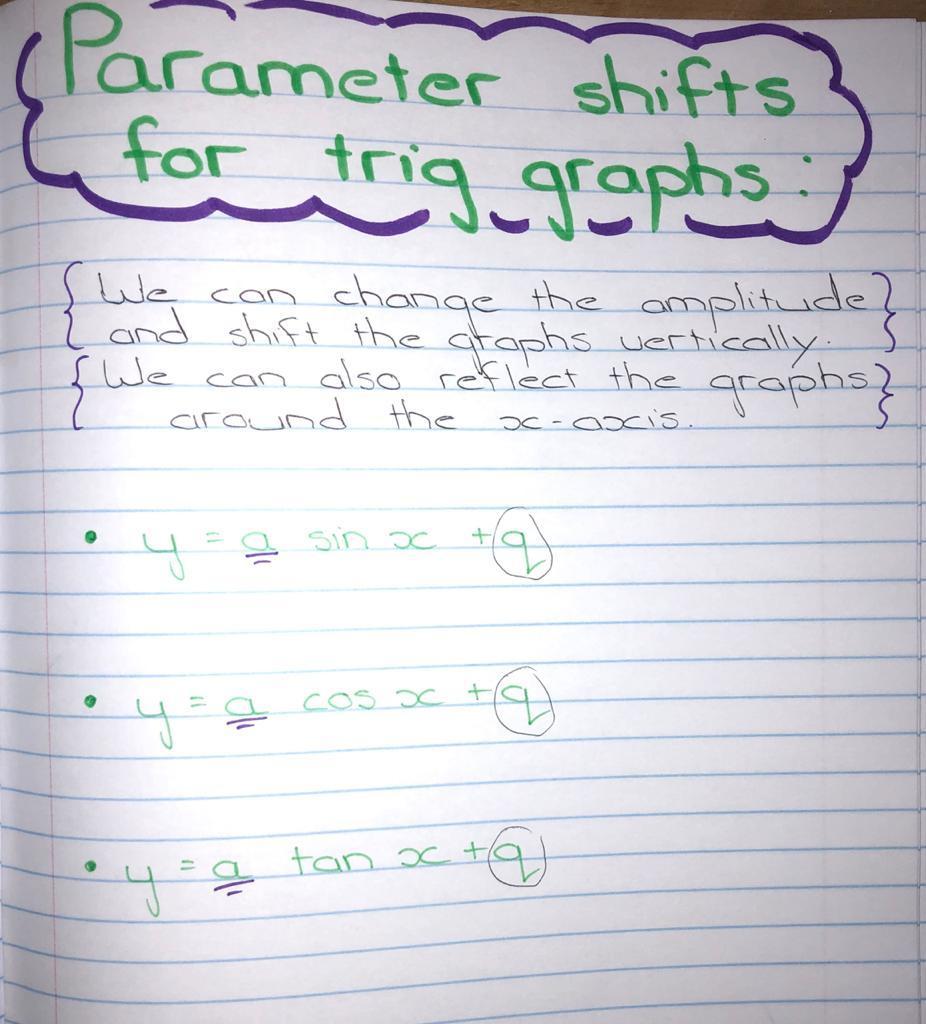 Parameter shifts
for trig graphs:
{We can change the amplitude}
{and shift the graphs vertically.}
{We can also reflect the graphs}
{around the x-axis.}
• y = a sin x + q
• y = a cos x + q
• y = a tan x + q